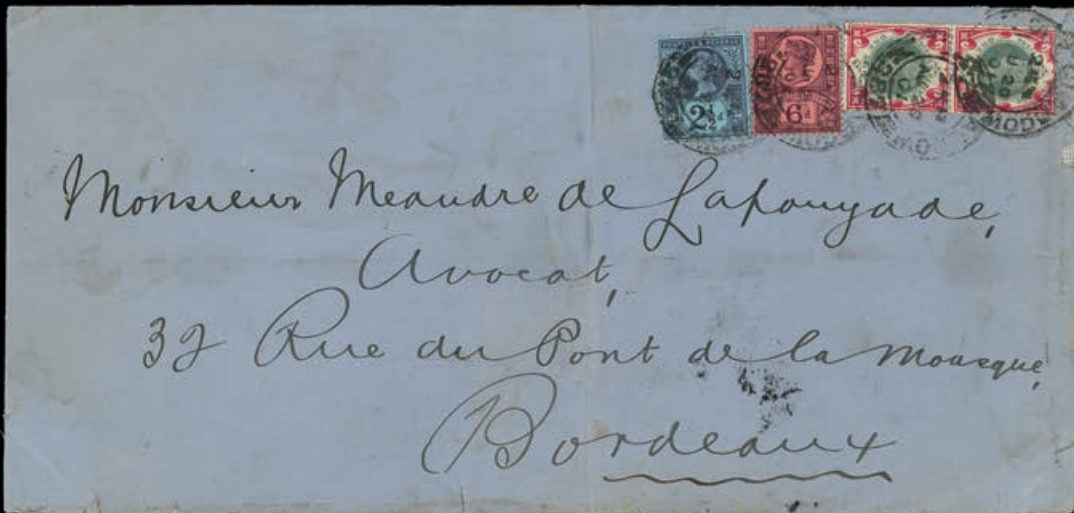 POSTAGE & REVENUE
2½d 6d
Monsieur Meaudre de Lapouyade,
Avocat,
32 Rue du Pont de la Mousque,
Bordeaux